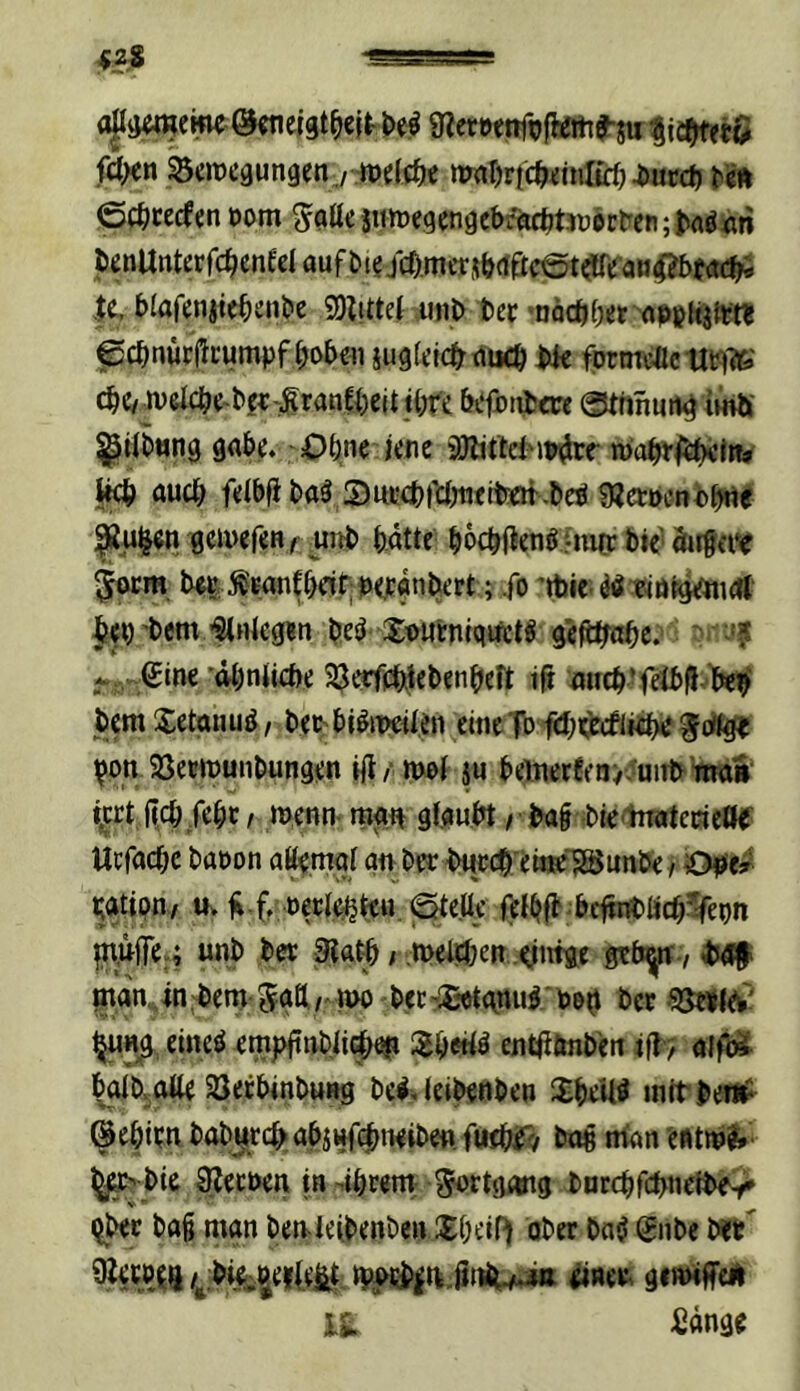 528
allgemeine Geneigtheit des Nervensystems zu gichteri-
schen Bewegungen, welche wahrscheinlich durch den
Schrecken vom Falle zuwegengebracht worden; das an
den Unterschenkel auf die schmerzhafte Stelle angebrach-
te, blasenziehende Mittel und der nachher applizirte
Schnürstrumpf hoben zugleich auch die formelle Ursa-
che, welche der Krankheit ihre besondere Stimmung und
Bildung gabe. Ohne jene Mittel wäre wahrschein-
lich auch selbst das Durchschneiden des Nerven ohne
Nutzen gewesen, und hätte höchstens nur die äußere
Form der Krankheit verändert; so wie es einigemal
bey dem Anlegen des Tourniquets geschahe.
Eine ähnliche Verschiebenheit ist auch selbst bey
dem Tetanus, der bisweilen eine so schreckliche Folge
von Verwundungen ist, wol zu bemerken, und man
irrt sich sehr, wenn man glaubt, daß die materielle
Ursache davon allemal an der durch eine Wunde, Ope-
ration, u. s. f. verletzten Stelle selbst befindlich seyn
müsse; und der Rath, welchen einige geben, daß
man in dem Fall, wo der Tetanus von der Verle-
tzung eines empfindlichen Theils entstanden ist, alfo-
bald alle Verbindung des leidenden Theils mit dem
Gehirn dadurch abzuschneiden suche, daß man entwe-
der die Nerven in ihrem Fortgang durchschneide,
oder daß man den leidenden Theil, oder das Ende der
Nerven, die verletzt worden sind, in einer gewissen
Länge